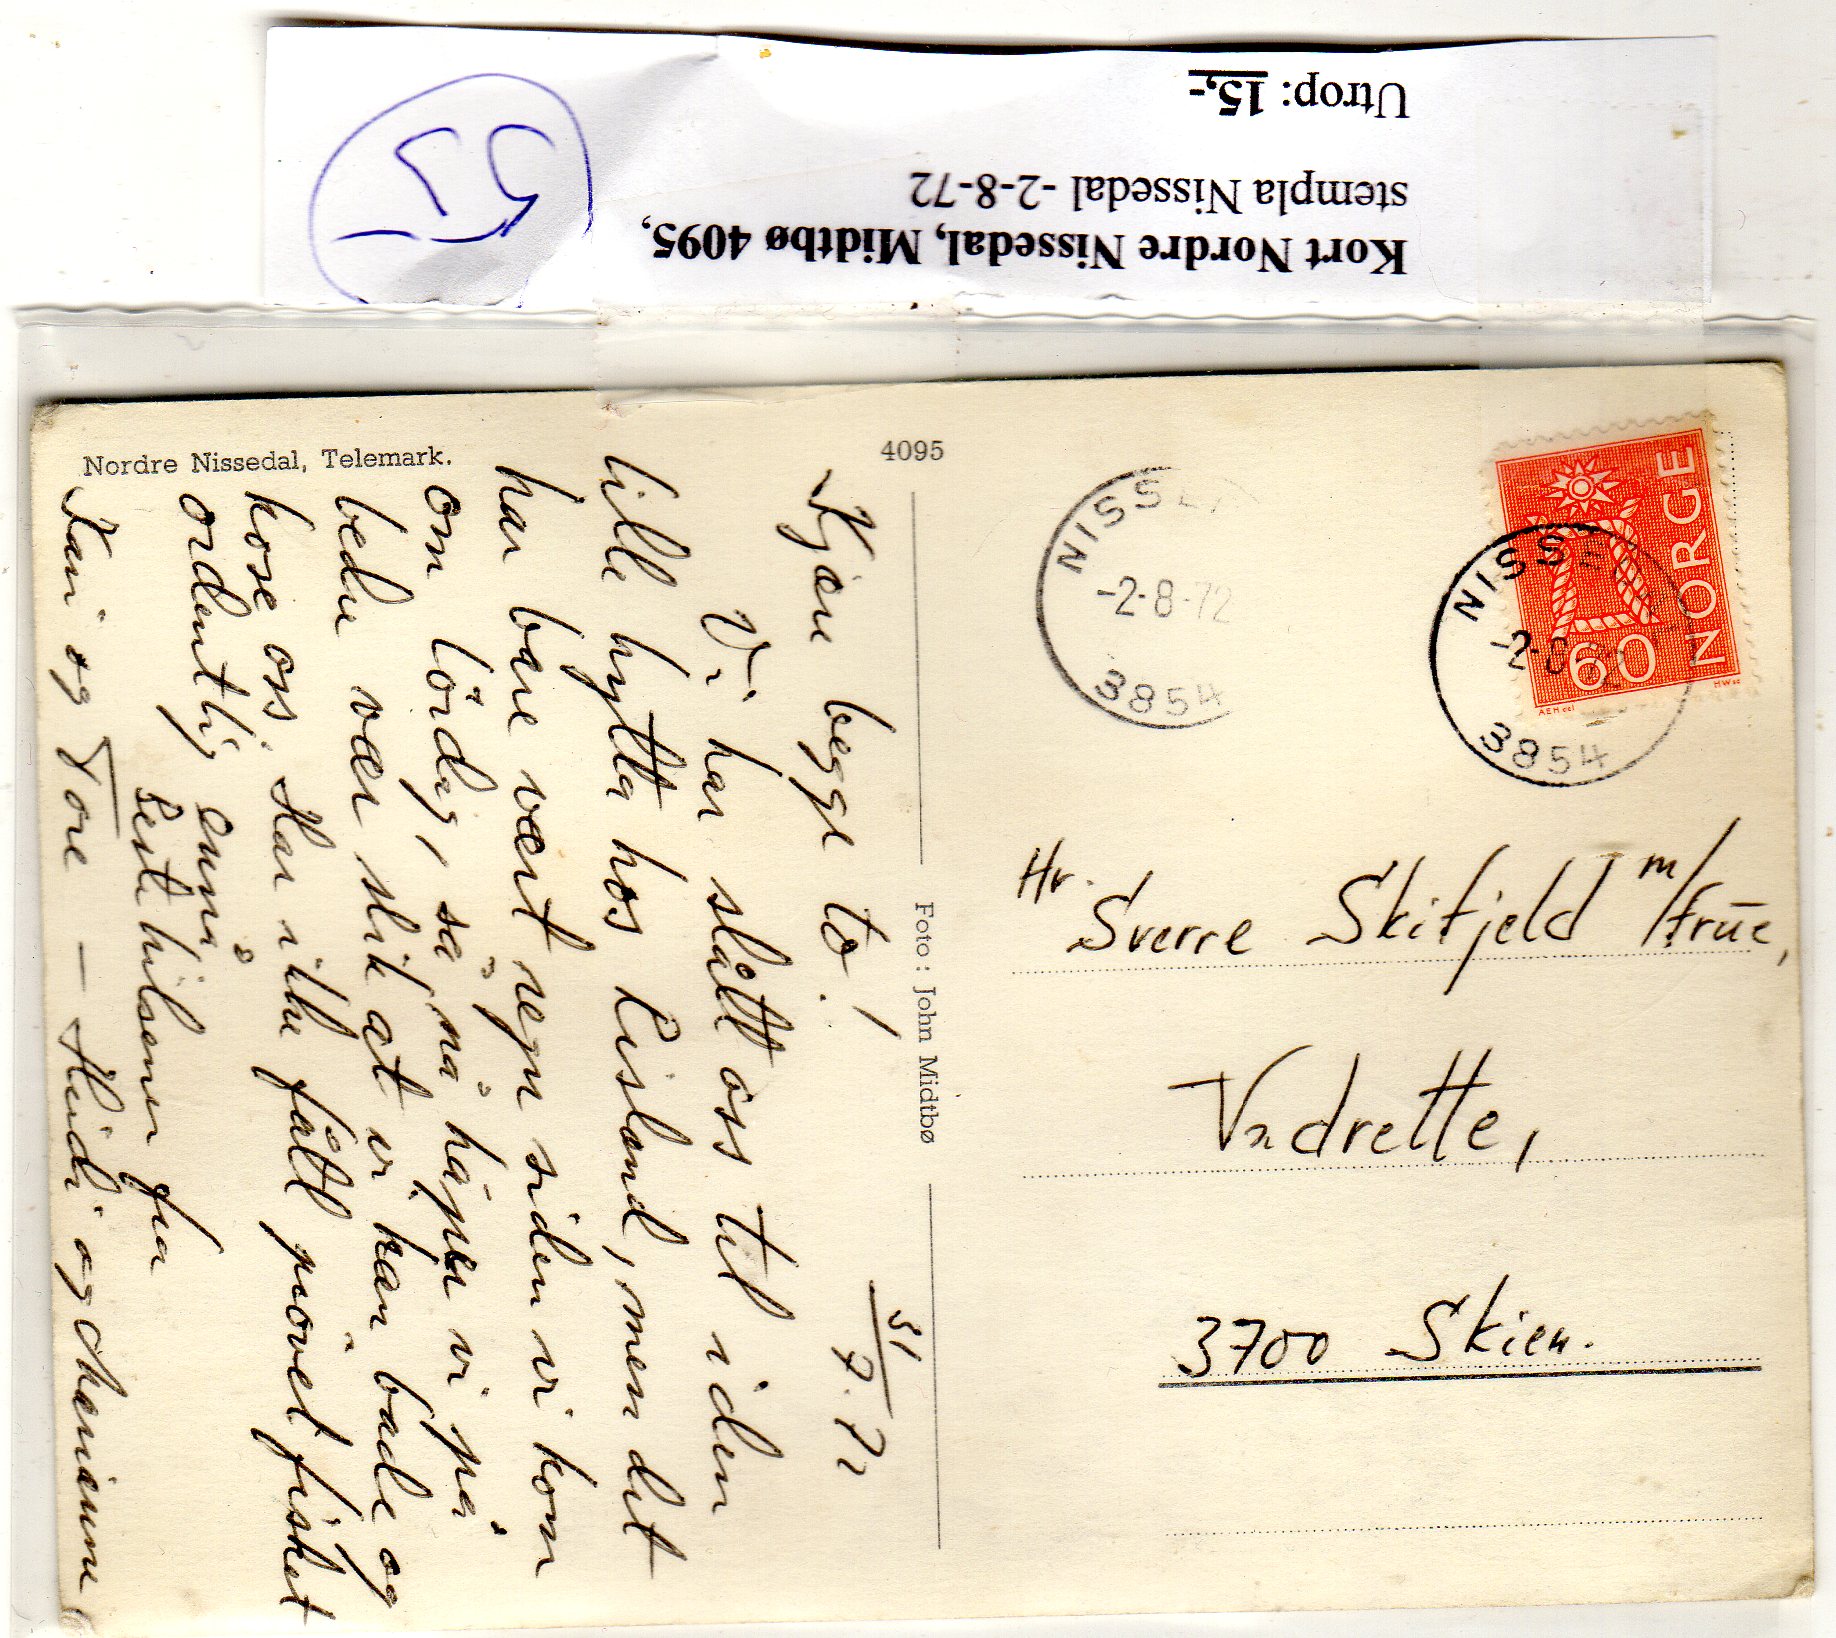 Kort Nordre Nissedal, Midtbø 4095,
stempla Nissedal -2-8-72
Utrop: 15,-
55
Nordre Nissedal, Telemark.
4095
31/7.72
Kjære begge to!
Vi har slått oss til i den
lille hytta hos Lisland, men det
har bare vært regn siden vi kom
om lördag, så nå håper vi på
bedre vær slik at vi kan bade og
kose oss. Har ikke fått prövet fisket
ordentlig ennå.
Beste hilsener fra
Kari og Tore — Heidi og Marianne
Foto: John Midtbø
NISSE
-2-8-72
3854
NISSE
3854
NORGE
60
AEH del
HW sc
Hr.
Sverre Skifjeld m/frue,
Vadrette,
3700 Skien.